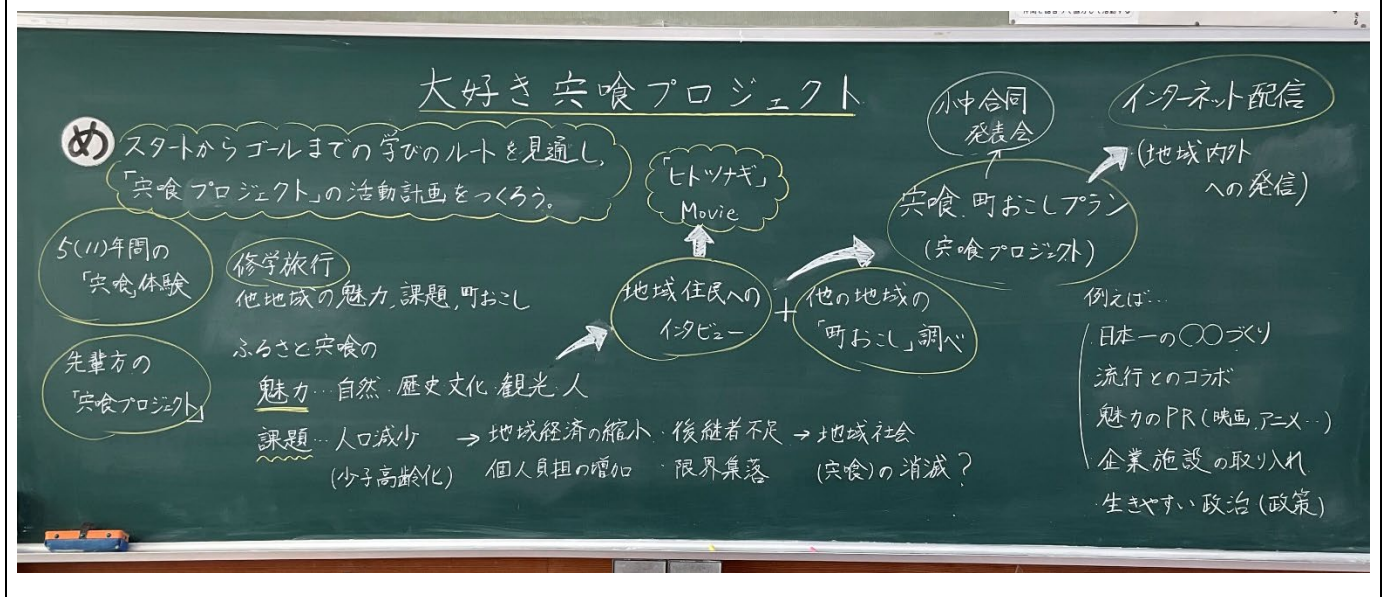 大好き宍喰プロジェクト
め
スタートからゴールまでの学びのルートを見通し,
「宍喰プロジェクト」の活動計画をつくろう。
5(11)年間の
「宍喰」体験
先輩方の
「宍喰プロジェクト」
修学旅行
他地域の魅力,課題,町おこし
ふるさと宍喰の
魅力…自然・歴史文化・観光・人
課題…人口減少
(少子高齢化)
→地域経済の縮小
個人負担の増加
・後継者不足
・限界集落
→地域社会
(宍喰)の消滅?
「ヒトツナギ」
Movie
地域住民への
インタビュー
+
他の地域の
「町おこし」調べ
小中合同
発表会
宍喰町おこしプラン
(宍喰プロジェクト)
インターネット配信
(地域内外
への発信)
例えば…
・日本一の〇〇づくり
・流行とのコラボ
・魅力のPR(映画,アニメ…)
・企業施設の取り入れ
・生きやすい政治(政策)